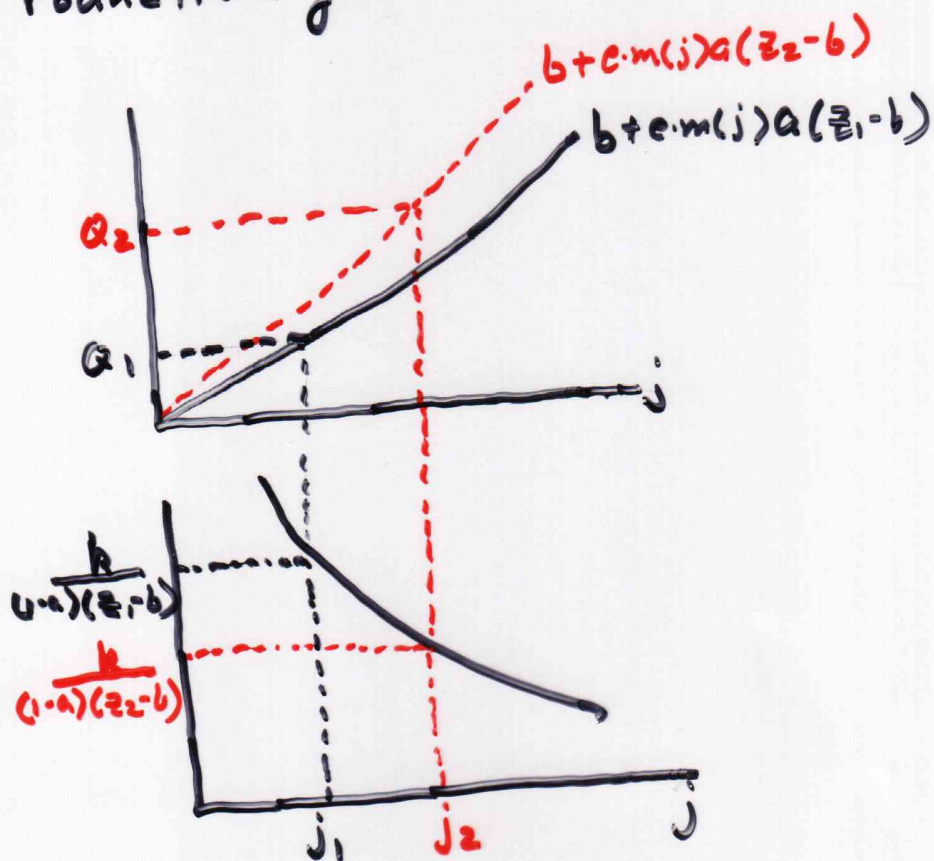 b+e·m(j)a(z₂-b)
b+e·m(j)a(z₁-b)
Q₂
Q₁
j
k
(1-a)(z₁-b)
k
(1-a)(z₂-b)
j₁
j₂
j